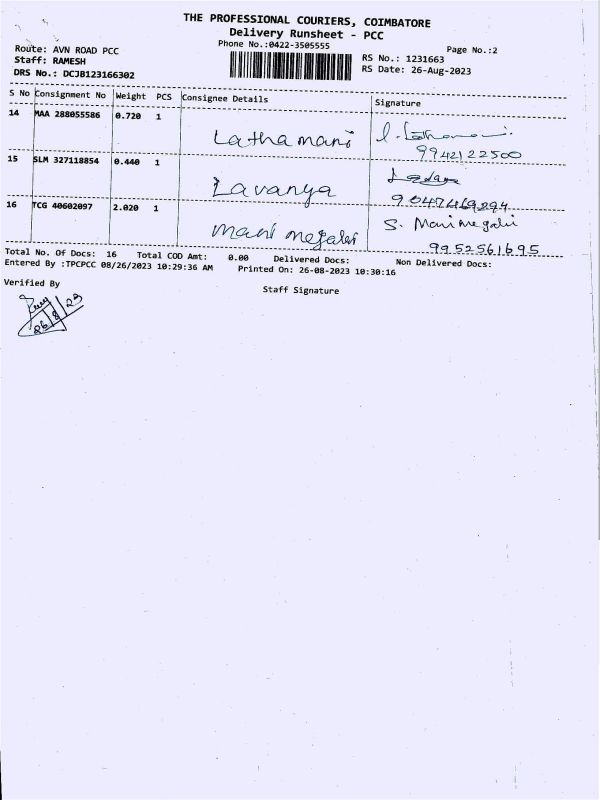 THE PROFESSIONAL COURIERS, COIMBATORE
Delivery Runsheet - PCC
Phone No.:0422-3505555
Page No.:2
Route: AVN ROAD PCC
RS No.: 1231663
Staff: RAMESH
RS Date: 26-Aug-2023
DRS No.: DCJB123166302
S No Consignment No Weight PCS Consignee Details Signature
14 MAA 288055586 0.720 1 Lathamani l. Lathamani
9942122500
15 SLM 327118854 0.440 1 Lavanya
9047469294
16 TCG 40602097 2.020 1 mani megalai S. Manimegalai
9952561695
Total No. Of Docs: 16 Total COD Amt: 0.00 Delivered Docs: Non Delivered Docs:
Entered By :TPCPCC 08/26/2023 10:29:36 AM Printed On: 26-08-2023 10:30:16
Verified By
Staff Signature
26/8/23